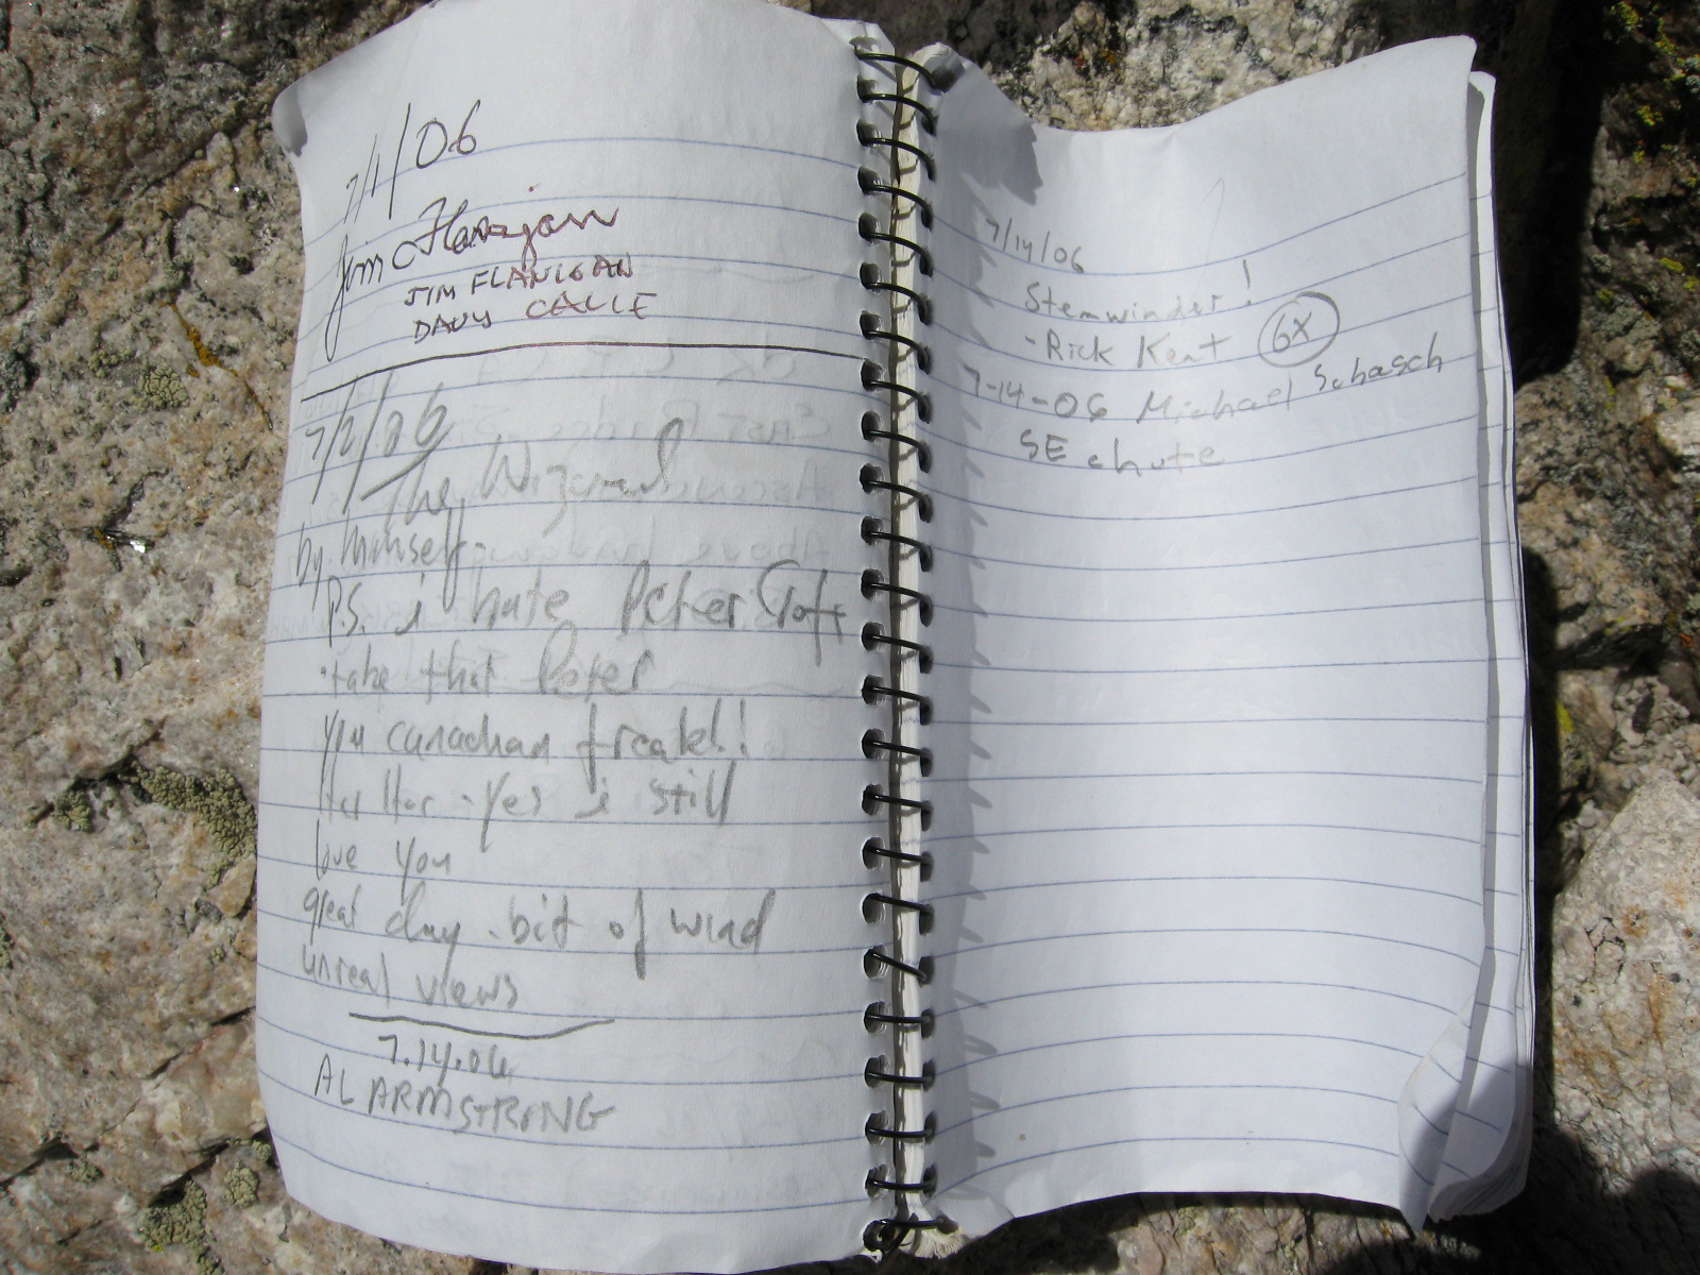 7/1/06
Jim Flanigan
JIM FLANIGAN
DAVY CALLE
7/2/06
The Wizard
by himself.
P.S. i hate Peter Croft
take that Peter
you canadian freak!!
yes i still
love you
great day. bit of wind
unreal views
7.14.06
AL ARMSTRONG
7/14/06
Stemwinder!
- Rick Kent 6X
7-14-06 Michael Schasch
SE chute